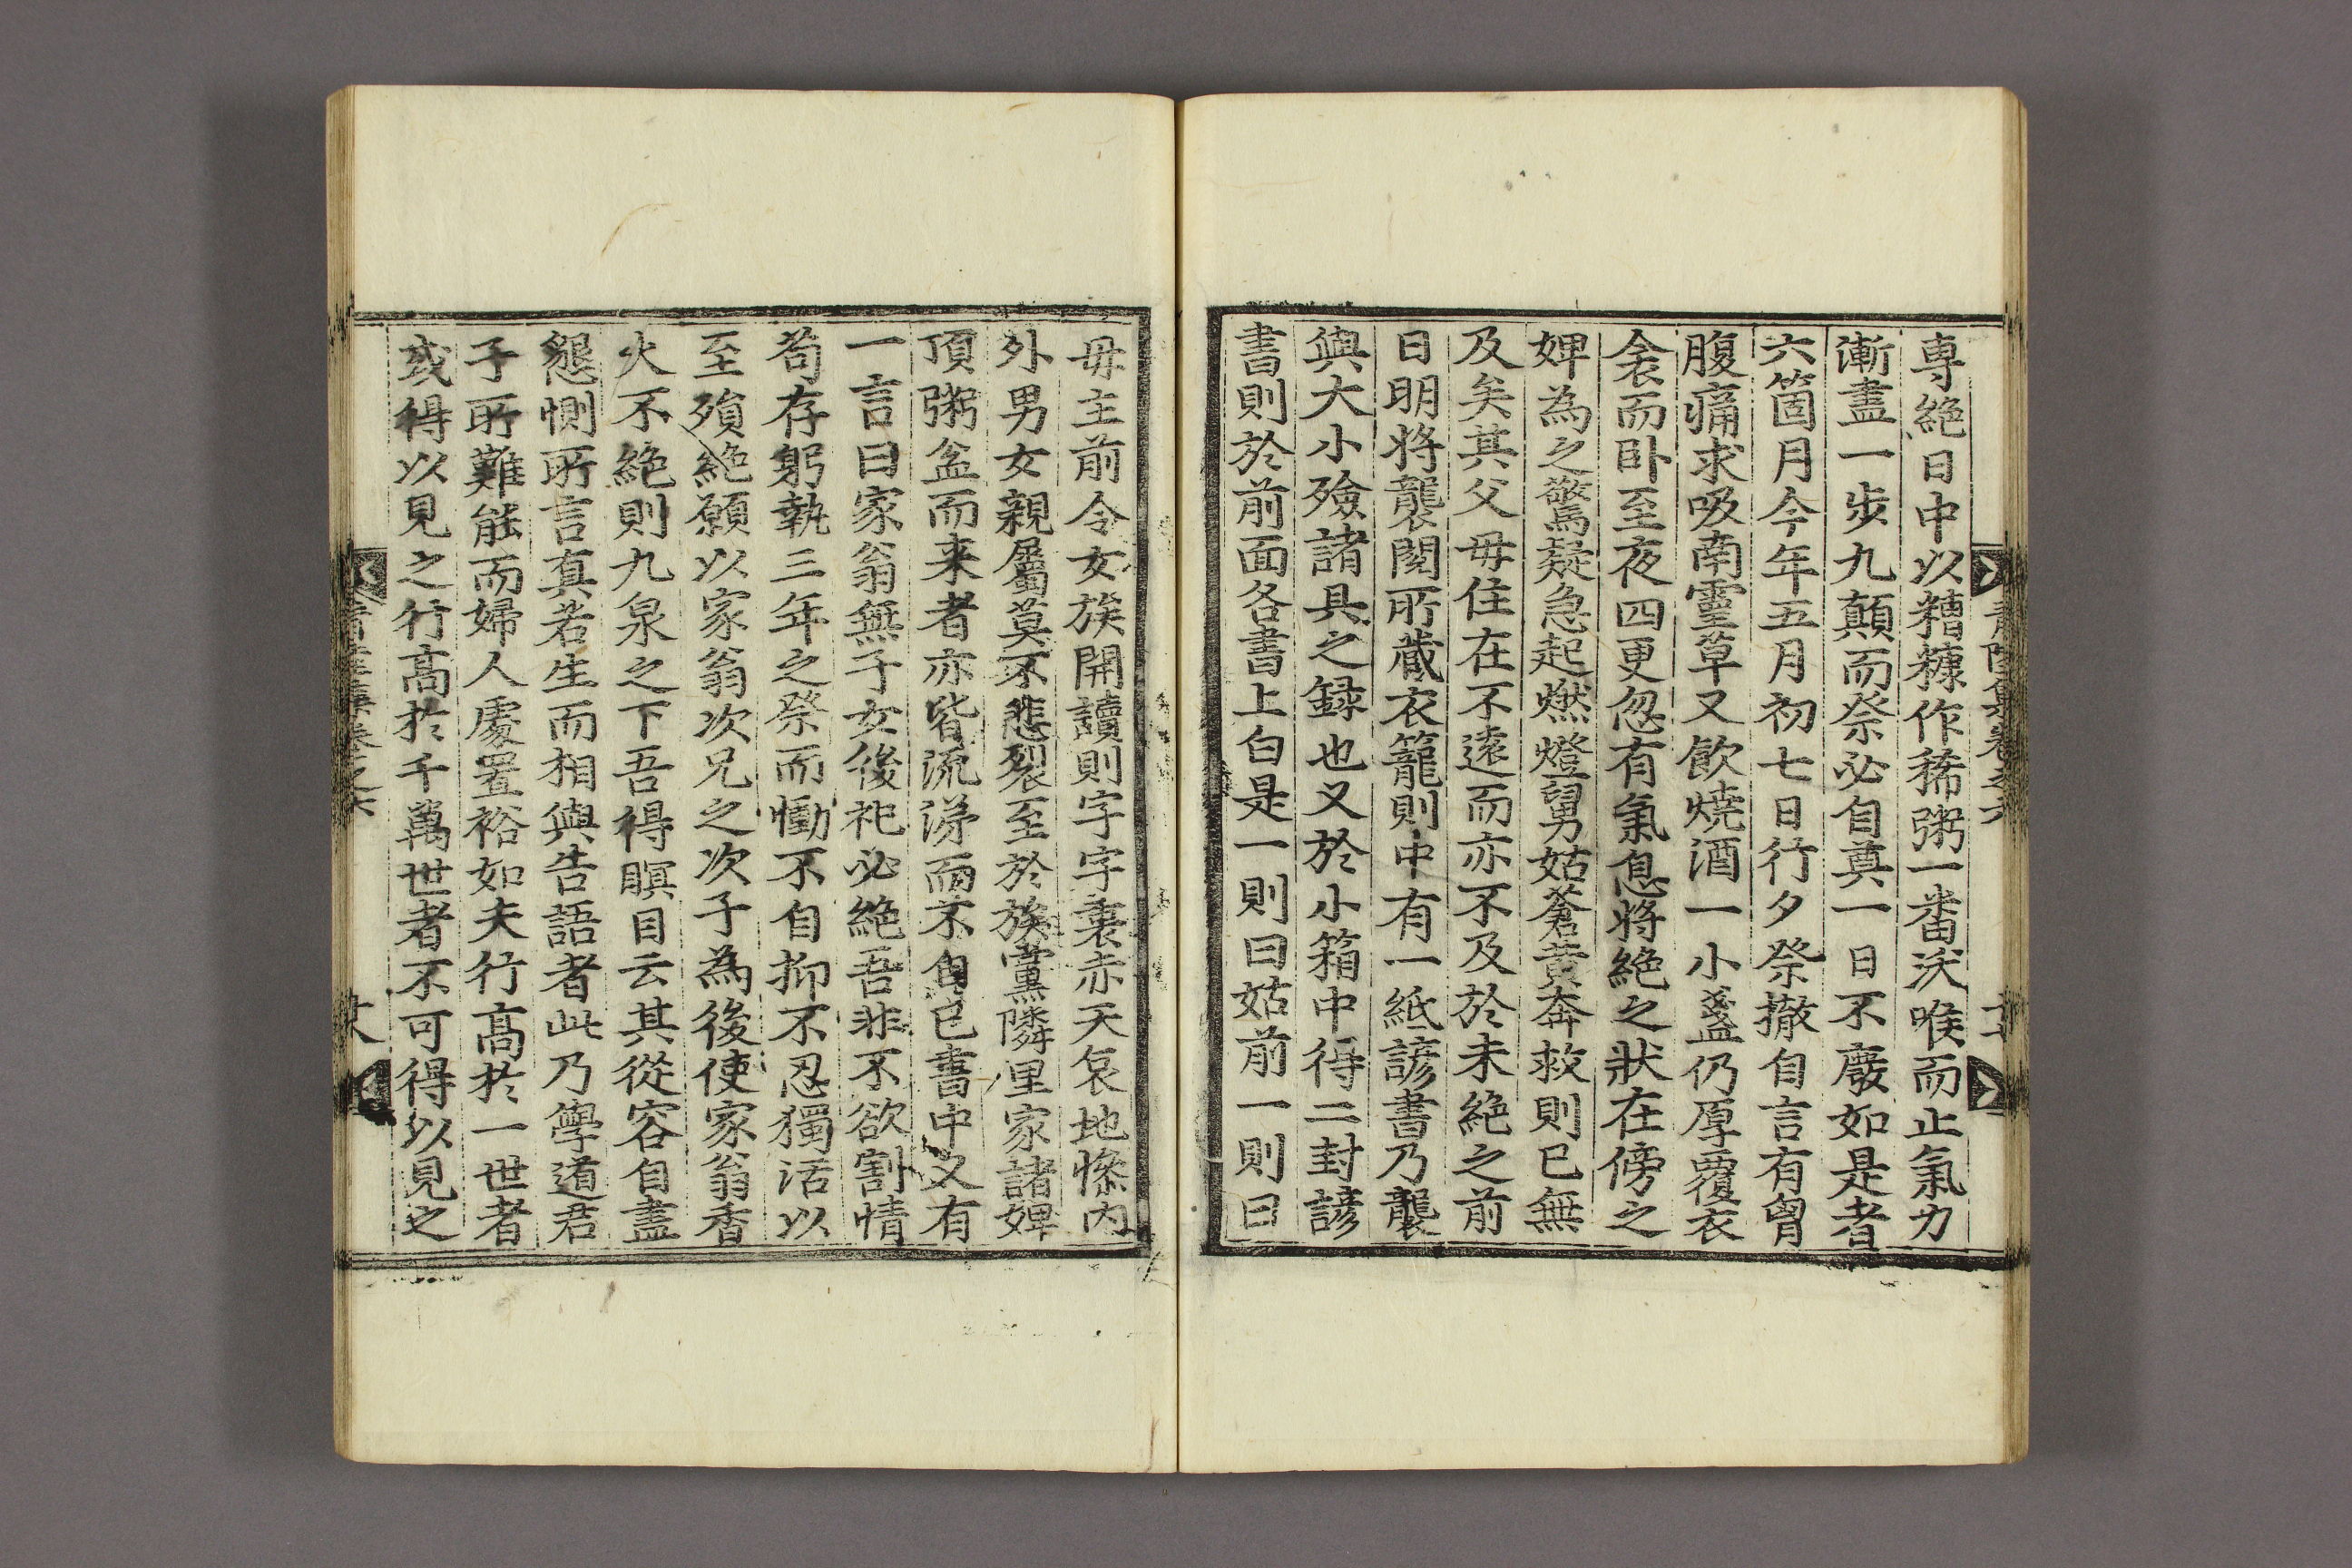 専絶日中以糟糠作稀粥一番沃喉而止氣力
漸盡一步九顛而祭必自奠一日不廢如是者
六箇月今年五月初七日行夕祭撤自言有胷
腹痛求吸南靈草又飮燒酒一小盞仍厚覆衣
衾而卧至夜四更忽有氣息將絶之狀在傍之
婢為之驚疑急起燃燈舅姑蒼黄奔救則已無
及矣其父母住在不遠而亦不及於未絶之前
日明將襲閱所藏衣籠則中有一紙諺書乃襲
與大小殮諸具之録也又於小箱中得二封諺
書則於前面各書上白是一則曰姑前一則曰
母主前令女族開讀則字字衷赤天哀地慘内
外男女親屬莫不悲裂至於族黨隣里家諸婢
頂粥盆而来者亦皆流涕而不自已書中又有
一言曰家翁無子女後祀必絶吾非不欲割情
苟存躬執三年之祭而慟不自抑不忍獨活以
至殞絶願以家翁次兄之次子為後使家翁香
火不絶則九泉之下吾得瞑目云其從容自盡
懇惻所言真若生而相與告語者此乃學道君
子所難能而婦人處置裕如夫行高於一世者
或得以見之行高於千萬世者不可得以見之